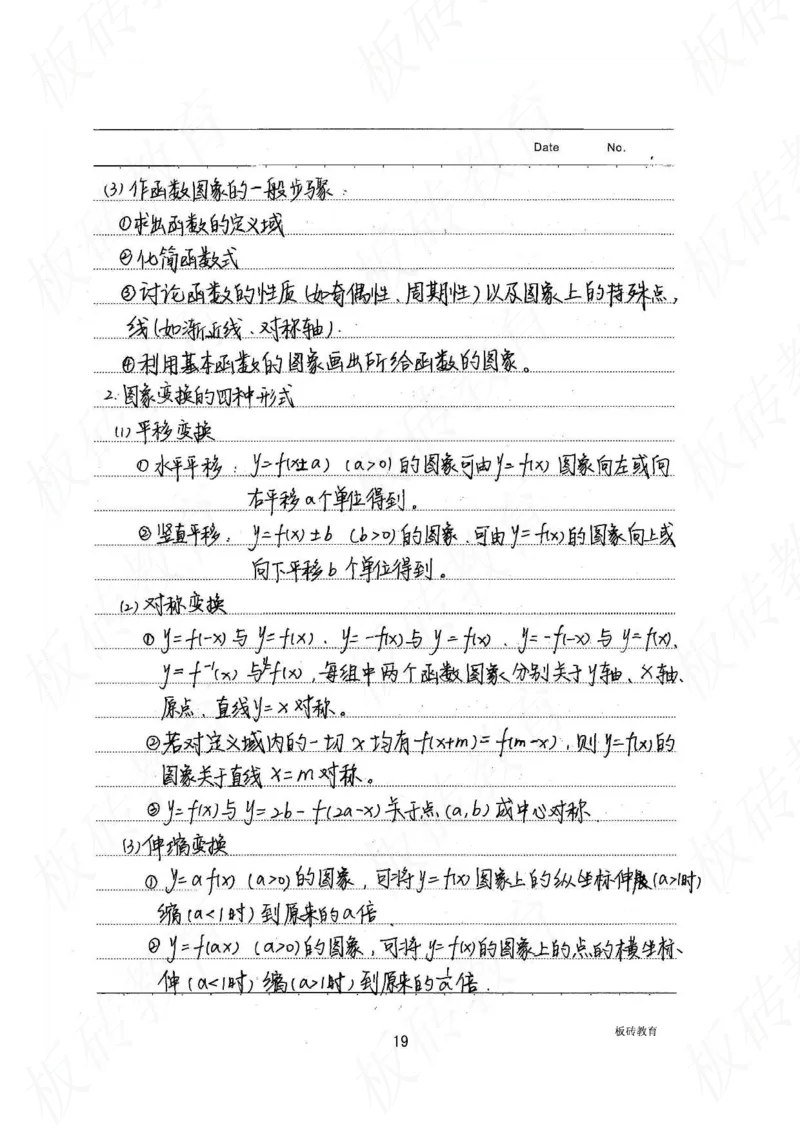 Date No.
(3)作函数图象的一般步骤：
①求出函数的定义域
②化简函数式
③讨论函数的性质(如奇偶性、周期性)以及图象上的特殊点,
线(如渐近线、对称轴).
④利用基本函数的图象画出所给函数的图象。
2.图象变换的四种形式
(1)平移变换
①水平平移：y=f(x±a)（a>0)的图象可由y=f(x)图象向左或向
右平移a个单位得到。
②竖直平移，y=f(x)±b （b>0)的图象、可由y=f(x)的图象向上或
向下平移b个单位得到。
(2)对称变换
①y=f(-x)与y=f(x)、y=-f(x)与y=f(x)、y=-f(-x)与y=f(x)、
y=f⁻¹(x)与y=f(x)，每组中两个函数图象分别关于y轴、x轴、
原点、直线y=x对称。
②若对定义域内的一切x均有f(x+m)=f(m-x)，则y=f(x)的
图象关于直线x=m对称。
③y=f(x)与y=2b-f(2a-x)关于点(a,b)成中心对称.
(3)伸缩变换
①y=af(x)（a>0)的图象，可将y=f(x)图象上的纵坐标伸展(a>1时)
缩(a<1时)到原来的a倍.
②y=f(ax)（a>0)的图象，可将y=f(x)的图象上的点的横坐标、
伸(a<1时)缩(a>1时)到原来的1/a倍.
板砖教育
19